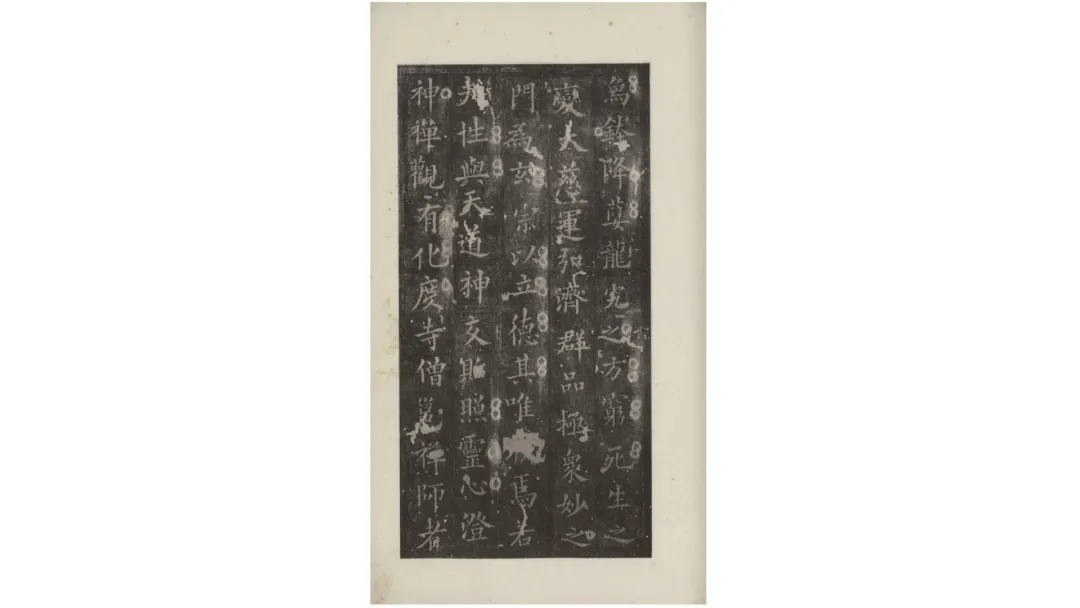 鉢降龍之方窮死生之
變大慈運弘濟群品極衆妙之
門為玄宗以立德其唯焉若
夫性與天道神交斯照靈心澄
神禪觀有化度寺僧邕禅師者